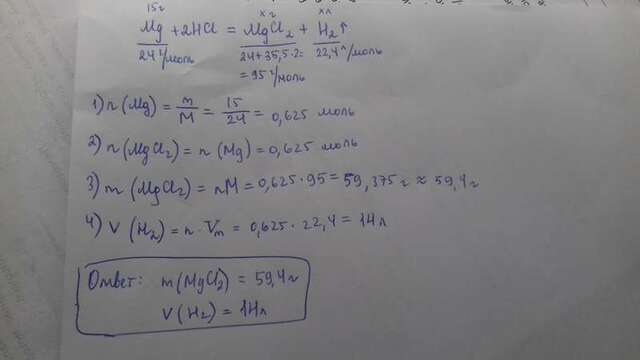 15г xг xл
Mg + 2HCl = MgCl₂ + H₂↑
24 г/моль 24+35,5·2= 22,4 л/моль
= 95 г/моль
1) n(Mg) = m/M = 15/24 = 0,625 моль
2) n(MgCl₂) = n(Mg) = 0,625 моль
3) m(MgCl₂) = nM = 0,625·95 = 59,375 г ≈ 59,4 г
4) V(H₂) = n·Vm = 0,625·22,4 = 14л
Ответ: m(MgCl₂) = 59,4г
V(H₂) = 14л